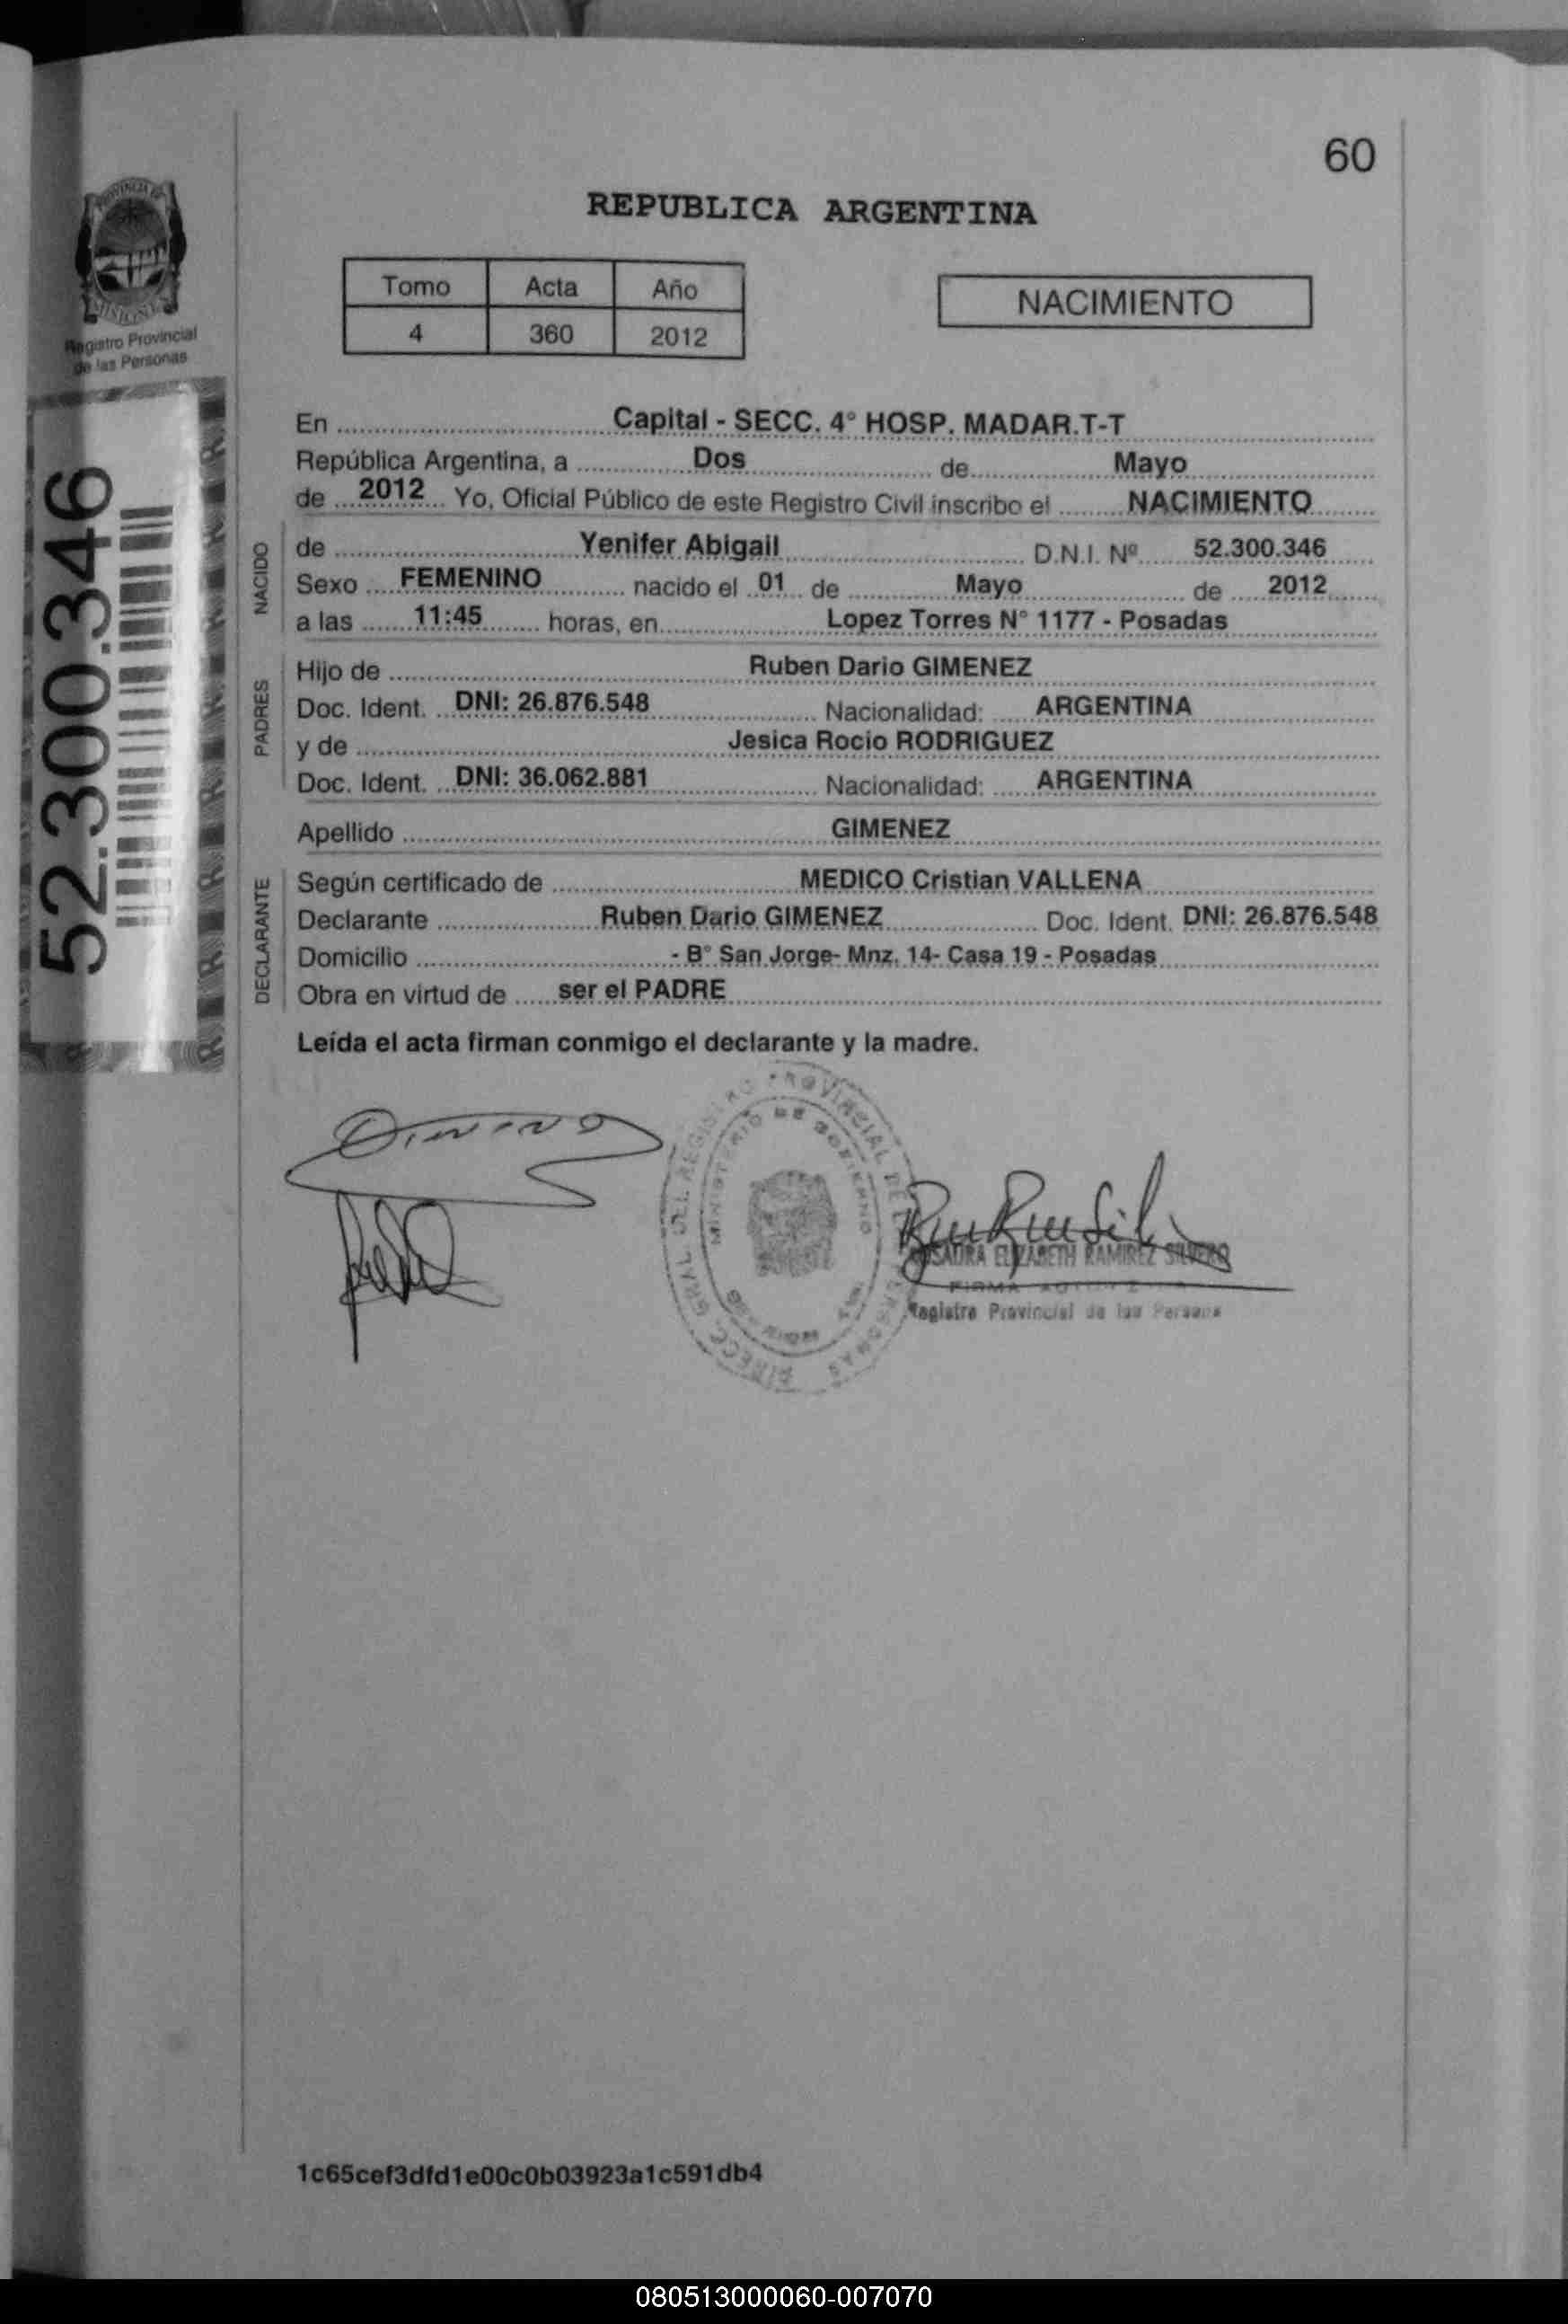 60
PROVINCIA DE
MISIONES
Registro Provincial
de las Personas
REPUBLICA ARGENTINA
Tomo Acta Año
4 360 2012
NACIMIENTO
52.300.346
En Capital - SECC. 4° HOSP. MADAR.T-T
República Argentina, a Dos de Mayo
de 2012 Yo, Oficial Público de este Registro Civil inscribo el NACIMIENTO
NACIDO
de Yenifer Abigail D.N.I. Nº 52.300.346
Sexo FEMENINO nacido el 01 de Mayo de 2012
a las 11:45 horas, en Lopez Torres N° 1177 - Posadas
PADRES
Hijo de Ruben Dario GIMENEZ
Doc. Ident. DNI: 26.876.548 Nacionalidad: ARGENTINA
y de Jesica Rocio RODRIGUEZ
Doc. Ident. DNI: 36.062.881 Nacionalidad: ARGENTINA
Apellido GIMENEZ
DECLARANTE
Según certificado de MEDICO Cristian VALLENA
Declarante Ruben Dario GIMENEZ Doc. Ident. DNI: 26.876.548
Domicilio - B° San Jorge- Mnz. 14- Casa 19 - Posadas
Obra en virtud de ser el PADRE
Leída el acta firman conmigo el declarante y la madre.
DIRECC. GRAL. DEL REGISTRO PROVINCIAL DE PERSONAS
MINISTERIO DE GOBIERNO
ROSAURA ELIZABETH RAMIREZ SILVERO
FIRMA
Registro Provincial de las Persona
1c65cef3dfd1e00c0b03923a1c591db4
080513000060-007070